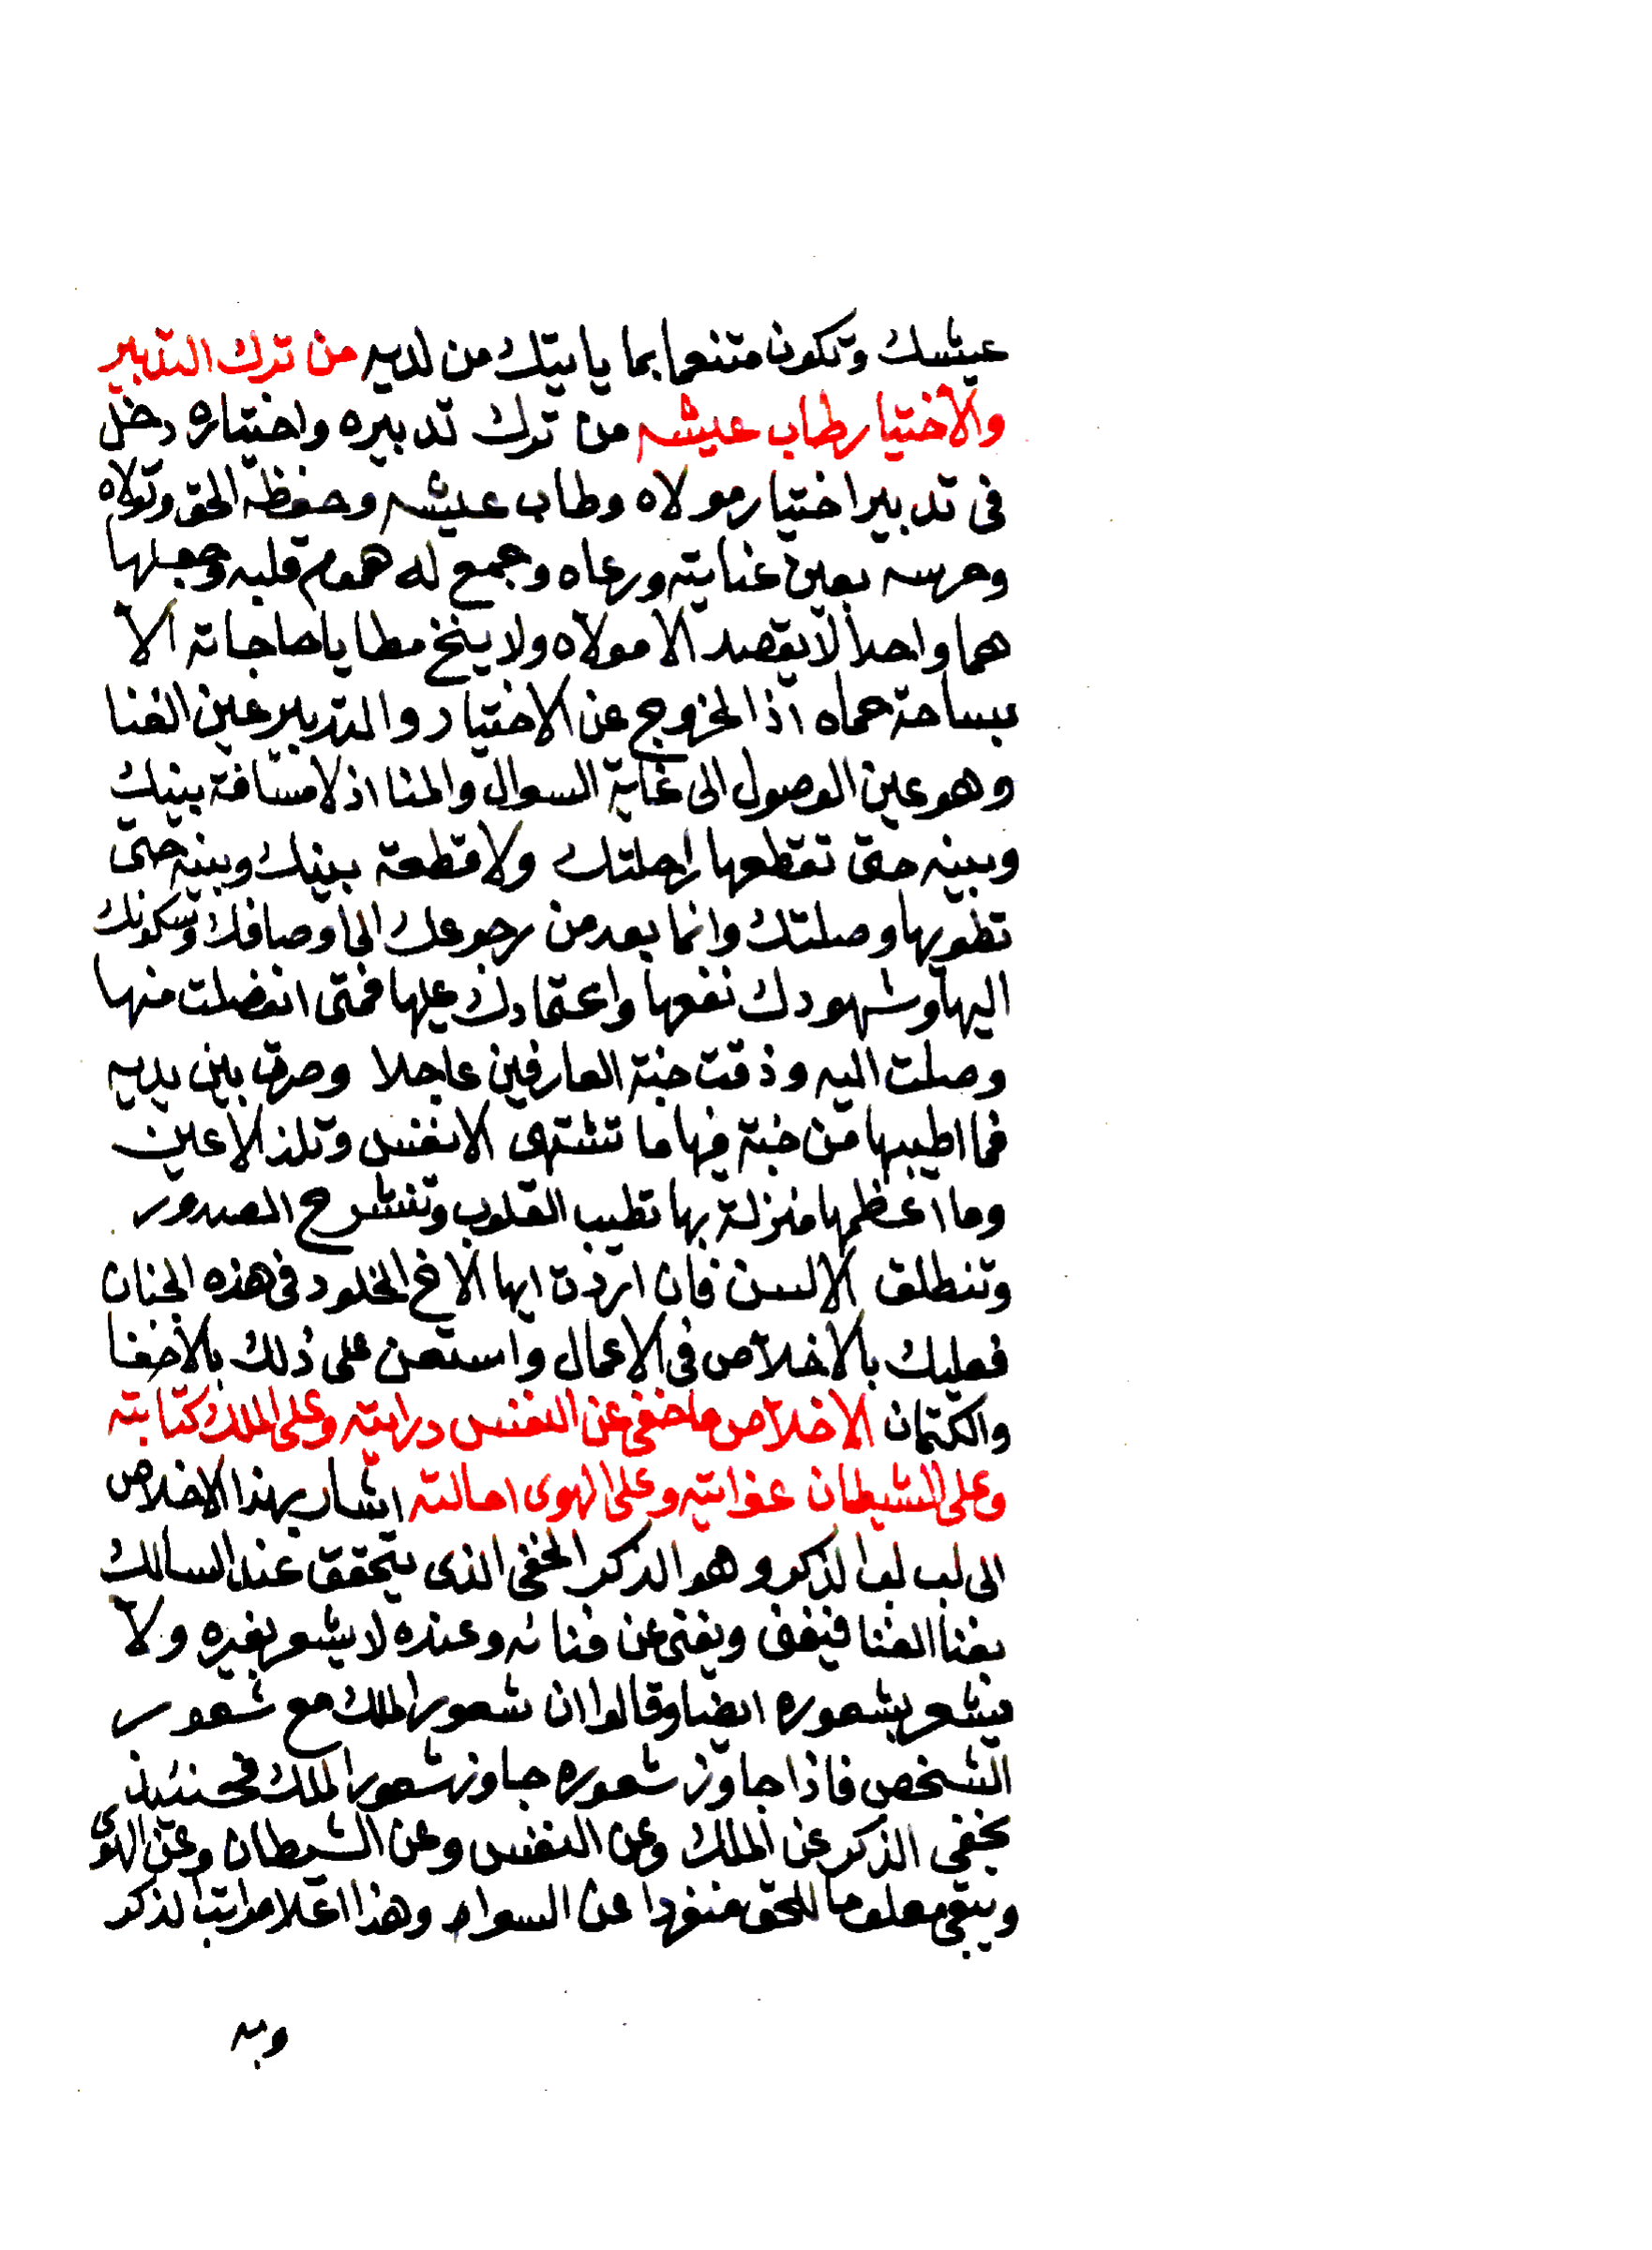 عيشك وتكون متنعما بما ياتيك من لديه من ترك التدبير
والاختيار طاب عيشه من ترك تدبيره واختياره دخل
فى تدبير اختيار مولاه وطاب عيشه وحفظه الحق وتولاه
وحرسه بعين عنايته ورعاه وجمع له هموم قلبه وجعلها
هما واحدا لا يقصد الا مولاه ولا ينخ مطايا حاجاته الا
بساحة حماه اذا الخروج عن الاختيار والتدبير عين الفنا
وهو عين الوصول الى غاية السوال والمنا اذ لا مسافة بينك
وبينه حتى تقطعها راحلتك ولا قطعة بينك وبينه حتى
تطويها وصلتك وانما بعد من رجوعك الى اوصافك وسكونك
اليها وشهودك نفعها واعتمادك عليها فمتى انفصلت منها
وصلت اليه وذقت جنة العارفين عاجلا وصرت بين يديه
فما اطيبها من جنة فيها ما تشتهى الانفس وتلذ الاعين
وما اعظمها منزلة بها تطيب القلوب وتنشرح الصدور
وتنطلق الالسن فان اردت ايها الاخ الخلود فى هذه الجنان
فعليك بالاخلاص فى الاعمال واستعن على ذلك بالاخفا
والكتمان الاخلاص ما خفى عن النفس درايته وعلى الملك كتابته
وعلى الشيطان غوايته وعلى الهوى امالته اشار بهذا الاخلاص
الى لب لب الذكر وهو الذكر الخفى الذى يتحقق عند السالك
بفنا الفنا فيفنى ويفنى عن فنائه وعنده لا يشعر بغيره ولا
يشعر بشعوره ايضا وقالوا ان شعور الملك مع شعور
الشخص فاذا جاوز شعوره جاوز شعور الملك فحينئيذ
يخفى الذكر عن الملك وعن النفس وعن الشيطان وعن الهوى
ويبقى معلوما للحق منفردا عن السوام وهذا اعلا مراتب الذكر
وبه